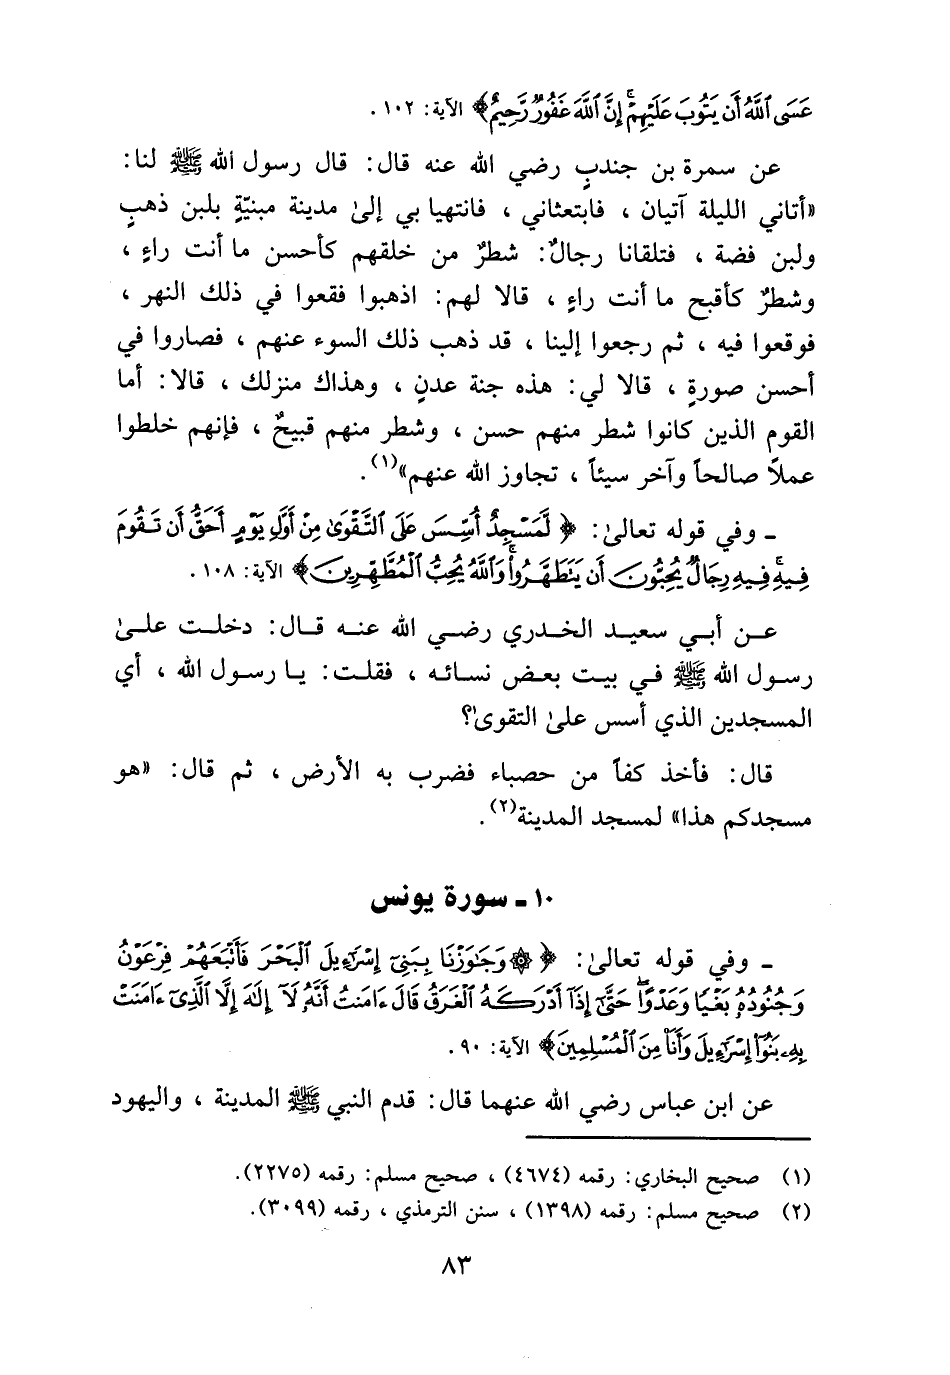 عَسَى ٱللَّهُ أَن يَتُوبَ عَلَيْهِمْ ۚ إِنَّ ٱللَّهَ غَفُورٌ رَّحِيمٌ﴾ الآية: ١٠٢ .
عن سمرة بن جندبٍ رضي الله عنه قال: قال رسول الله ﷺ لنا:
«أتاني الليلة آتيان ، فابتعثاني ، فانتهيا بي إلىٰ مدينة مبنيّةٍ بلبن ذهبٍ
ولبن فضة ، فتلقانا رجالٌ: شطرٌ من خلقهم كأحسن ما أنت راءٍ ،
وشطرٌ كأقبح ما أنت راءٍ ، قالا لهم: اذهبوا فقعوا في ذلك النهر ،
فوقعوا فيه ، ثم رجعوا إلينا ، قد ذهب ذلك السوء عنهم ، فصاروا في
أحسن صورةٍ ، قالا لي: هذه جنة عدنٍ ، وهذاك منزلك ، قالا: أما
القوم الذين كانوا شطر منهم حسن ، وشطر منهم قبيحٌ ، فإنهم خلطوا
عملاً صالحاً وآخر سيئاً ، تجاوز الله عنهم»(١) .
ـ وفي قوله تعالىٰ: ﴿ لَّمَسْجِدٌ أُسِّسَ عَلَى ٱلتَّقْوَىٰ مِنْ أَوَّلِ يَوْمٍ أَحَقُّ أَن تَقُومَ
فِيهِ ۚ فِيهِ رِجَالٌ يُحِبُّونَ أَن يَتَطَهَّرُوا۟ ۚ وَٱللَّهُ يُحِبُّ ٱلْمُطَّهِّرِينَ﴾ الآية: ١٠٨ .
عن أبي سعيد الخدري رضي الله عنه قال: دخلت علىٰ
رسول الله ﷺ في بيت بعض نسائه ، فقلت: يا رسول الله ، أي
المسجدين الذي أسس علىٰ التقوىٰ؟
قال: فأخذ كفاً من حصباء فضرب به الأرض ، ثم قال: «هو
مسجدكم هذا» لمسجد المدينة(٢) .
١٠ ـ سورة يونس
ـ وفي قوله تعالىٰ: ﴿ ۞ وَجَٰوَزْنَا بِبَنِىٓ إِسْرَٰٓءِيلَ ٱلْبَحْرَ فَأَتْبَعَهُمْ فِرْعَوْنُ
وَجُنُودُهُۥ بَغْيًا وَعَدْوًا ۖ حَتَّىٰٓ إِذَآ أَدْرَكَهُ ٱلْغَرَقُ قَالَ ءَامَنتُ أَنَّهُۥ لَآ إِلَٰهَ إِلَّا ٱلَّذِىٓ ءَامَنَتْ
بِهِۦ بَنُوٓا۟ إِسْرَٰٓءِيلَ وَأَنَا۠ مِنَ ٱلْمُسْلِمِينَ﴾ الآية: ٩٠ .
عن ابن عباس رضي الله عنهما قال: قدم النبي ﷺ المدينة ، واليهود
(١) صحيح البخاري: رقمه (٤٦٧٤) ، صحيح مسلم: رقمه (٢٢٧٥).
(٢) صحيح مسلم: رقمه (١٣٩٨) ، سنن الترمذي ، رقمه (٣٠٩٩).
٨٣